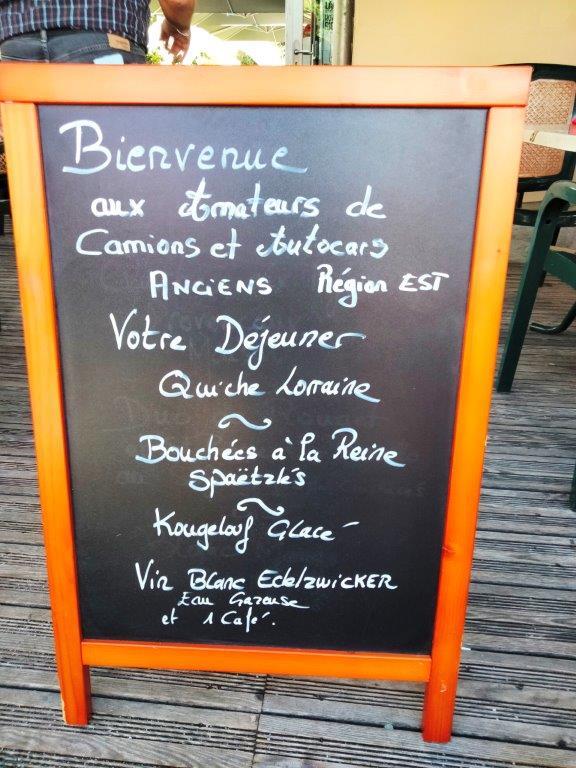 Bienvenue
aux Amateurs de
Camions et Autocars
ANCIENS Région EST
Votre Déjeuner
Quiche Lorraine
Bouchées à la Reine
Spaëtzlés
Kougelouf Glacé
Vin Blanc Edelzwicker
Eau Gazeuse
et 1 Café.